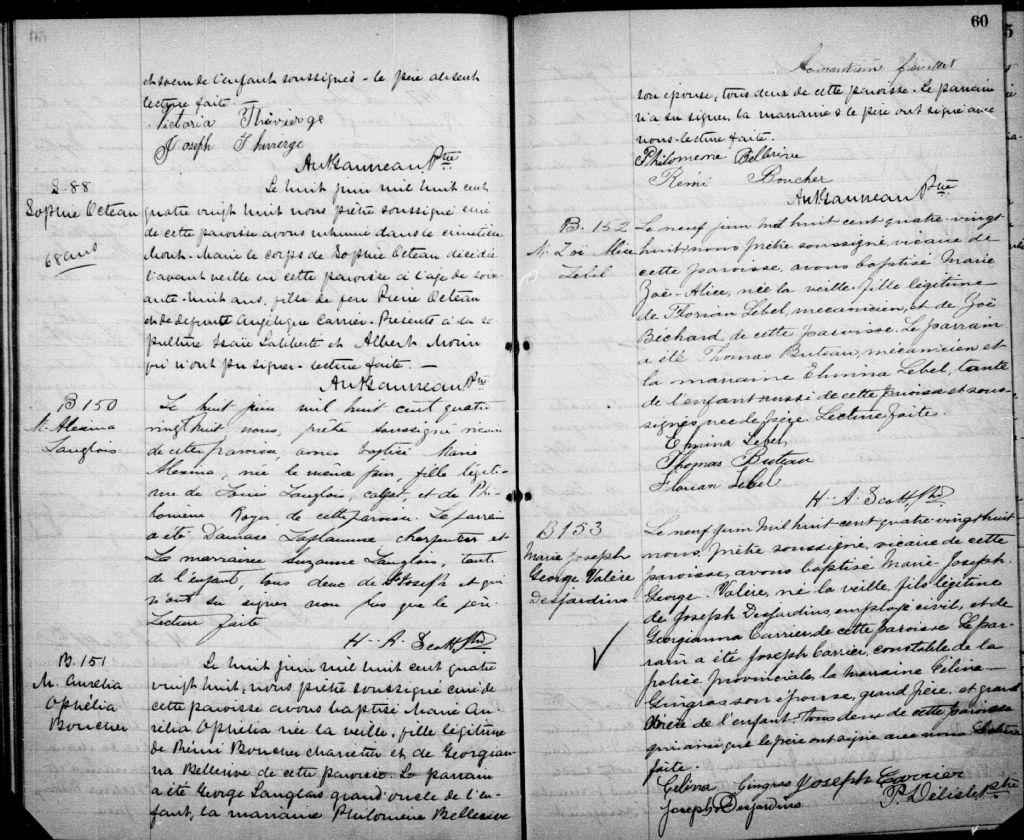 et soeur de l'enfant soussignés - le père absent
lecture faite -
Victoria Thivierge
Joseph Thivierge
Ptre
S. 88
Sophie Octeau
68 ans
Le huit juin mil huit cent
quatre vingt huit nous prêtre soussigné curé
de cette paroisse avons inhumé dans le cimetière
Mont-Marie le corps de Sophie Octeau décédée
l'avant veille en cette paroisse à l'age de soix-
ante-huit ans, fille de feu Pierre Octeau
et de défunte Angélique Carrier. Présents à la sé-
pulture Isaïe Laliberté et Albert Morin
qui n'ont pu signer - lecture faite. -
Ptre
B 150
M. Alexina
Langlois
Le huit juin mil huit cent quatre
vingt huit nous, prêtre soussigné vicaire
de cette paroisse, avons baptisé Marie
Alexina, née le même jour, fille légiti-
me de Louis Langlois, et de Phi-
lomène Royer, de cette paroisse. Le parrain
a été Damase Laflamme charpentier et
La marraine Suzanne Langlois, tante
de l'enfant, tous deux de St Joseph et qui
n'ont su signer non plus que le père.
Lecture faite
H. A. Scott Ptre
B. 151
M. Aurélia
Ophélia
Boucher
Le huit juin mil huit cent quatre
vingt huit, nous prêtre soussigné curé de
cette paroisse avons baptisé Marie Au-
rélia Ophélia née la veille, fille légitime
de Rémi Boucher charretier et de Georgian-
na Bellerive de cette paroisse. Le parrain
a été George Langlois grand oncle de l'en-
fant, la marraine Philomène Bellerive
60
Soixantième feuillet
son épouse, tous deux de cette paroisse. Le parrain
n'a su signer, la marraine & le père ont signé avec
nous - lecture faite.
Philomene Bellerive
Rémi Boucher
Ptre
B. 152
M. Zoé Alice
Lebel
Le neuf juin mil huit cent quatre-vingt
huit nous prêtre soussigné, vicaire de
cette paroisse, avons baptisé Marie
Zoë-Alice, née la veille, fille légitime
de Florian Lebel, mécanicien, et de Zoë
Béchard de cette paroisse. Le parrain
a été Thomas Buteau, mécanicien et
la marraine Elmina Lebel, tante
de l'enfant aussi de cette paroisse et sous-
signés avec le père. Lecture faite.
Elmina Lebel
Thomas Buteau
Florian Lebel
H. A. Scott Ptre
B 153
Marie Joseph
George Valère
Desjardins
Le neuf juin mil huit cent quatre-vingt huit
nous prêtre soussigné, vicaire de cette
paroisse, avons baptisé Marie-Joseph-
George-Valère, né la veille, fils légitime
de Joseph Desjardins employé civil, et de
Georgianna Carrier de cette paroisse Le par-
rain a été Joseph Carrier, constable de la
police Provinciale, la marraine Célina
Gingras son épouse, grand père et grand
mère de l'enfant tous deux de cette paroisse
qui ainsi que le père ont signé avec nous Lecture
faite.
Celina Gingras Joseph Carrier
Joseph Desjardins P. Délisle ptre